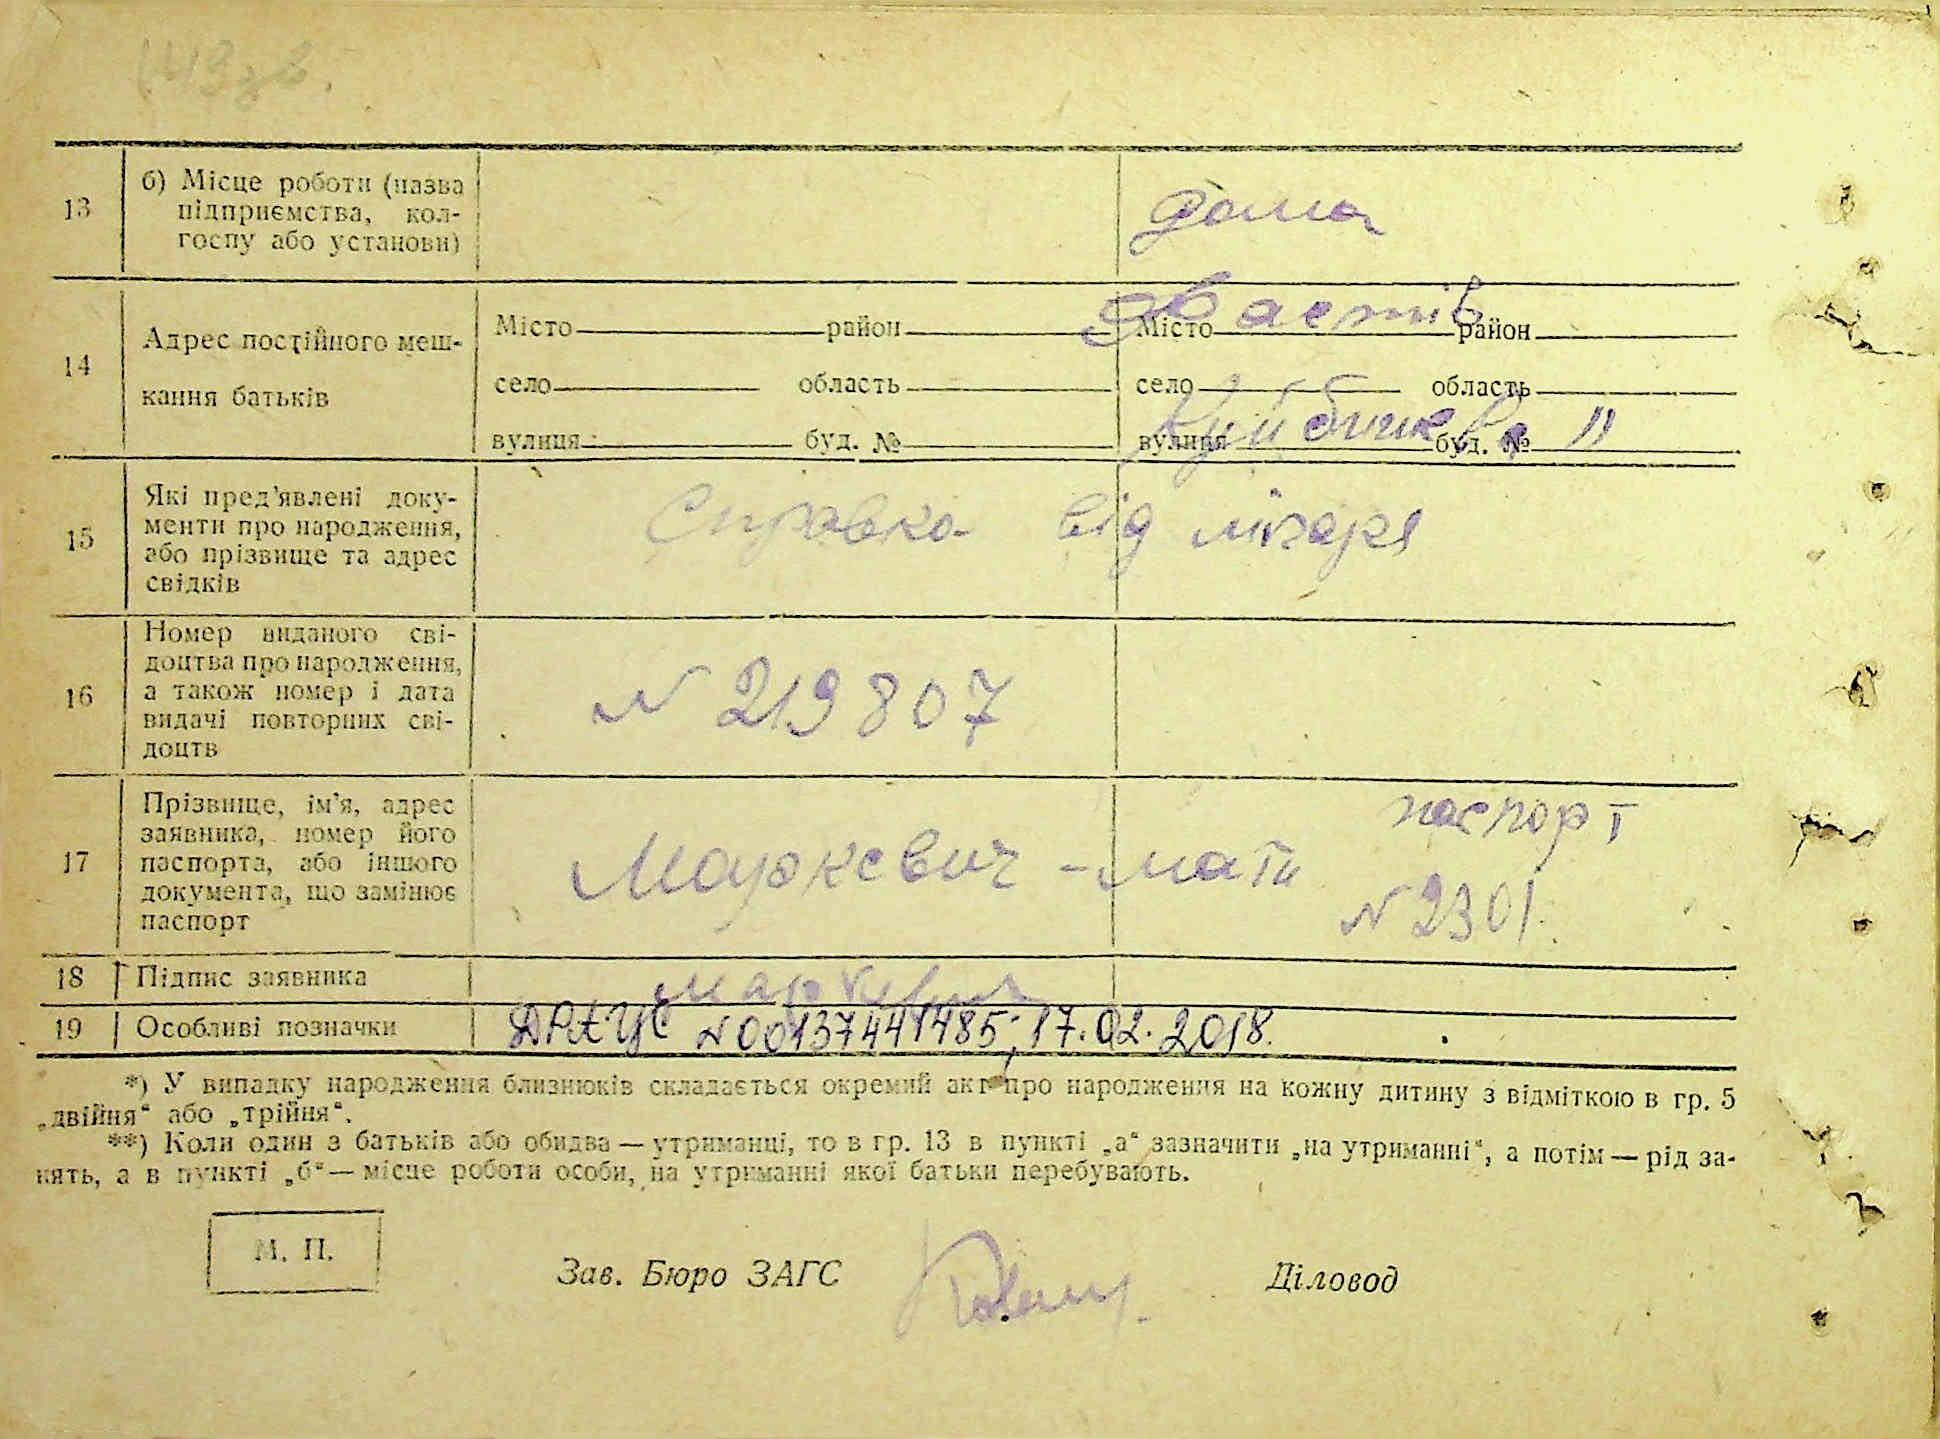 149 зв.
13
б) Місце роботи (назва
підприємства, кол-
госпу або установи)
дома
14
Адрес постійного меш-
кання батьків
Місто район
Місто район
Фастів
село область
село область
вулиця буд. №
вулиця буд. №
Куйбишева 11
15
Які пред'явлені доку-
менти про народження,
або прізвище та адрес
свідків
Справка від лікаря
16
Номер виданого сві-
доцтва про народження,
а також номер і дата
видачі повторних сві-
доцтв
N 219807
17
Прізвище, ім'я, адрес
заявника, номер його
паспорта, або іншого
документа, що замінює
паспорт
Маркевич - мати
паспорт
N 2301
18 Підпис заявника
Маркевич
19 Особливі позначки
ДРАЦС N00137441485; 17.02.2018.
*) У випадку народження близнюків складається окремий акт про народження на кожну дитину з відміткою в гр. 5
„двійня“ або „трійня“.
**) Коли один з батьків або обидва — утриманці, то в гр. 13 в пункті „а“ зазначити „на утриманні“, а потім — рід за-
нять, а в пункті „б“ — місце роботи особи, на утриманні якої батьки перебувають.
М. П.
Зав. Бюро ЗАГС
Діловод